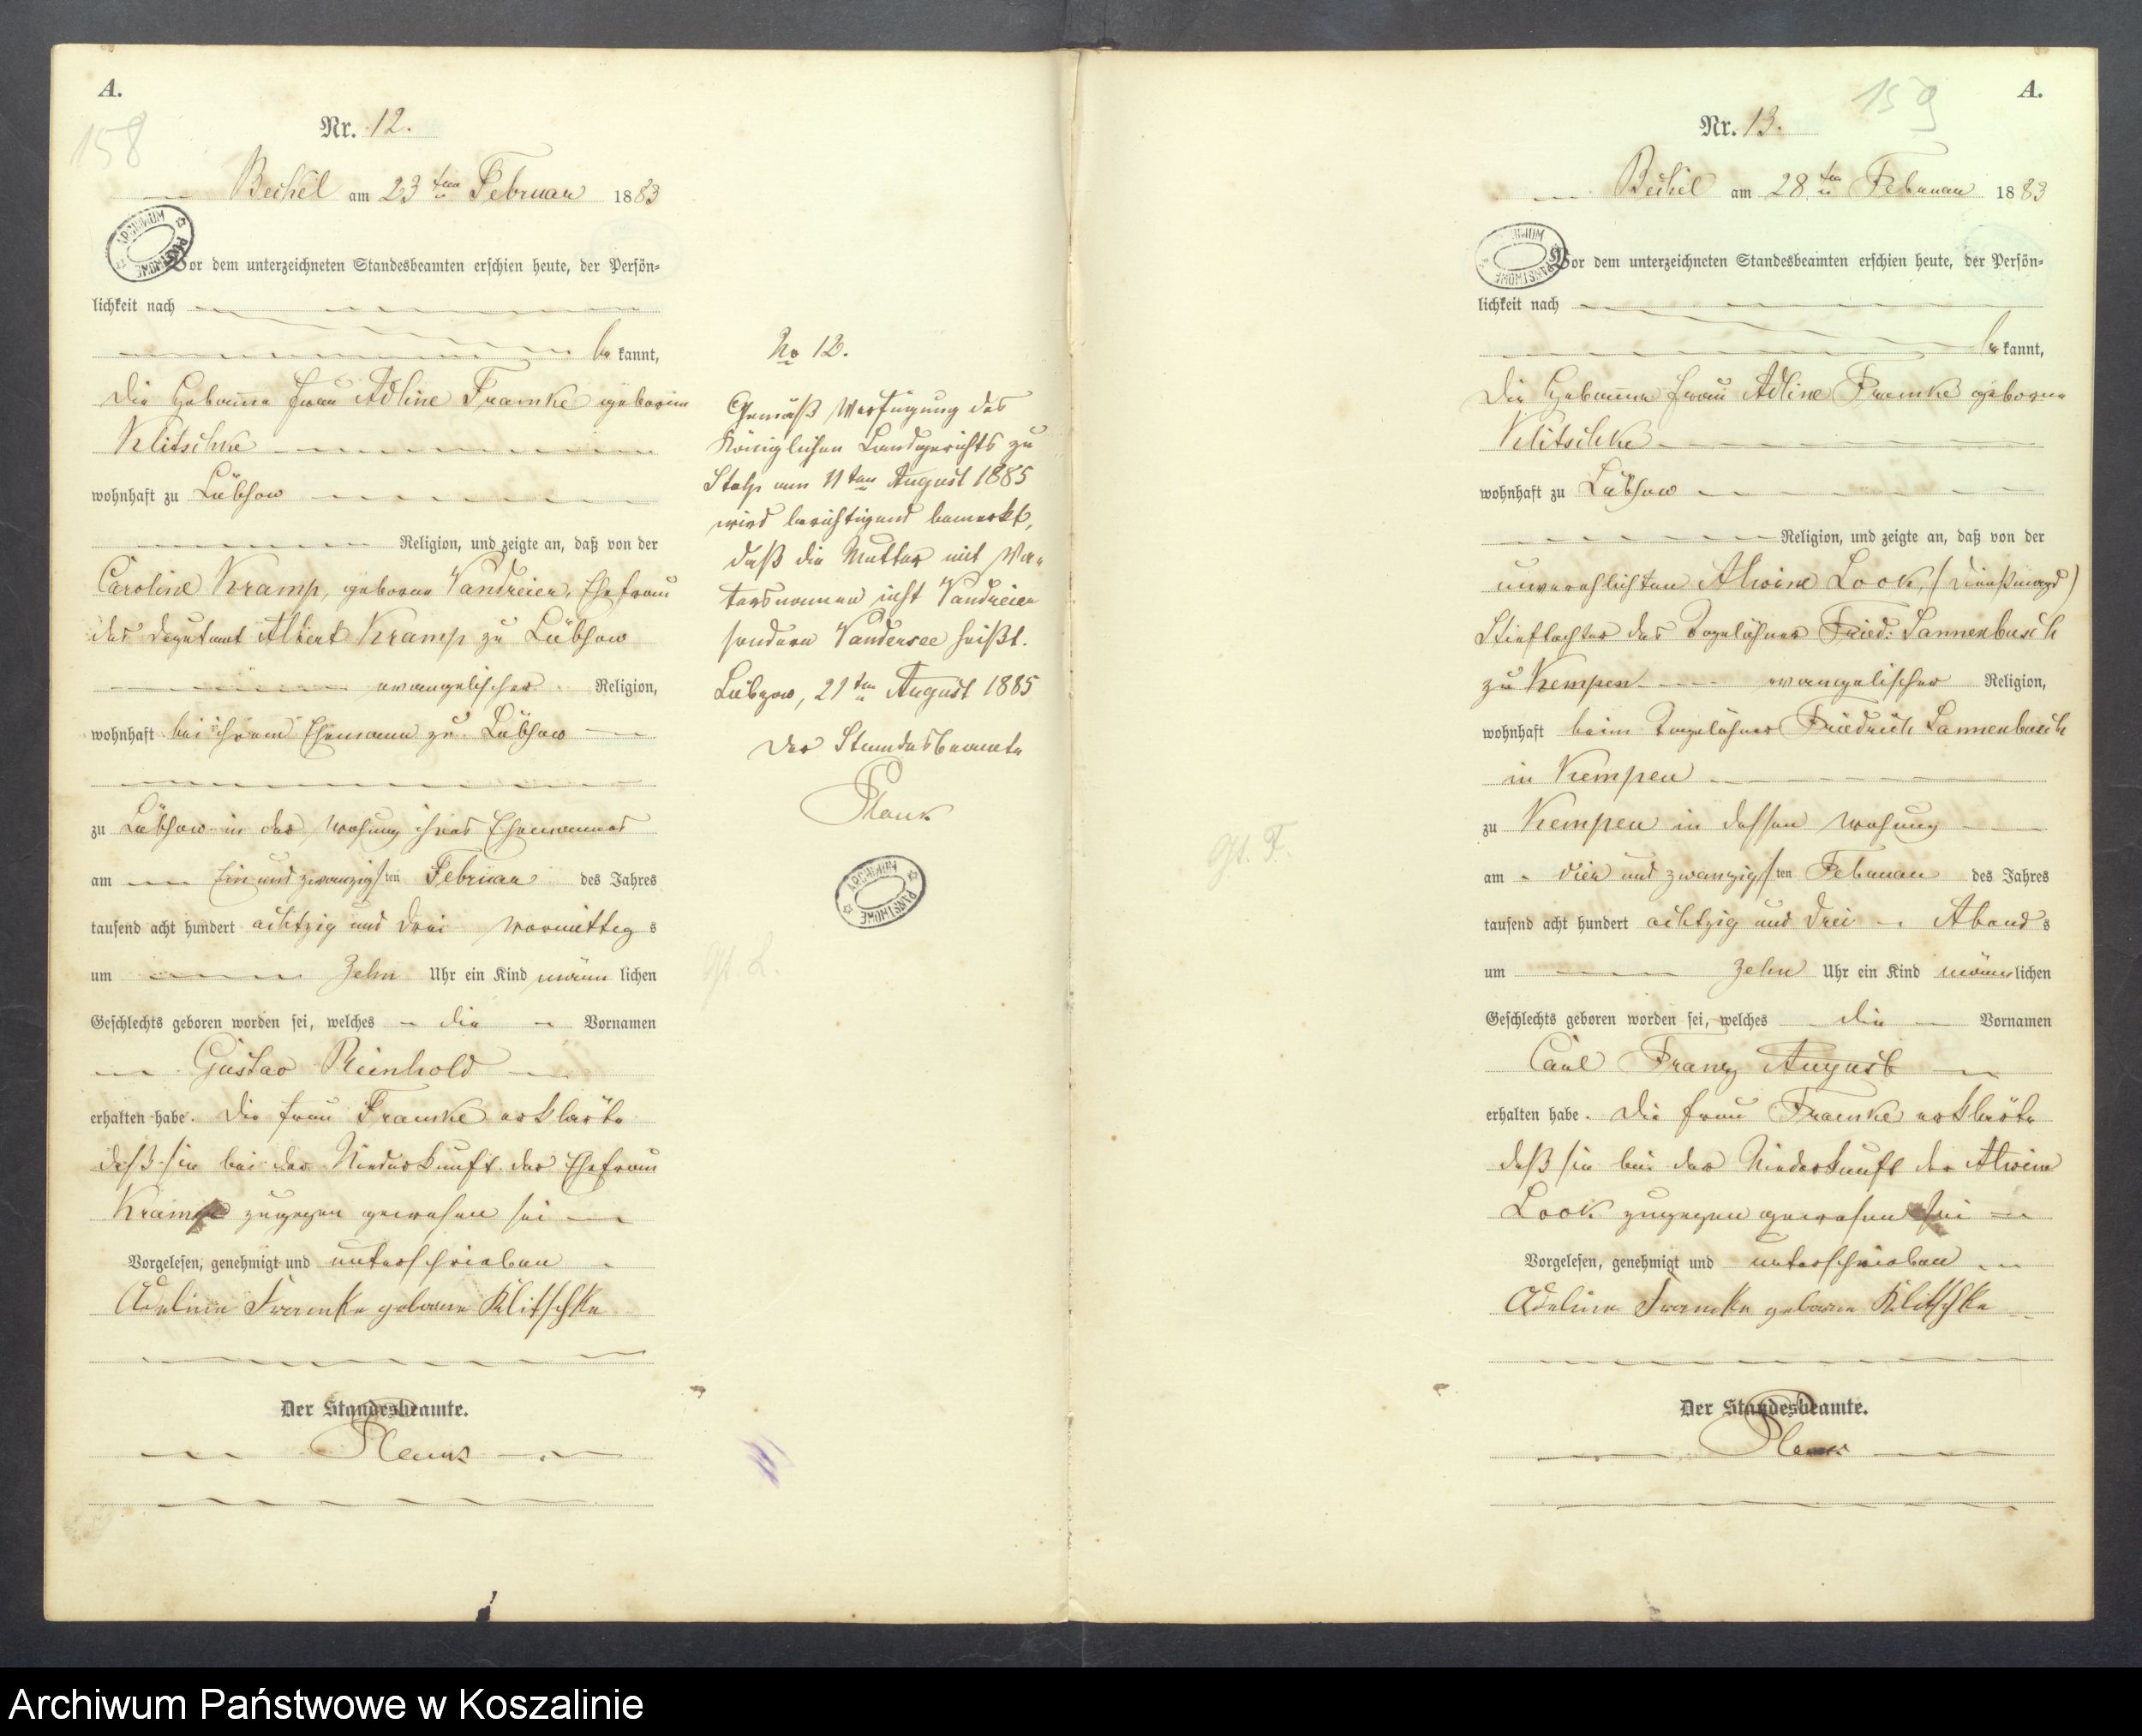 A.
158
Nr. 12.
Beckel am 23ten Februar 1883
Vor dem unterzeichneten Standesbeamten erschien heute, der Persön-
lichkeit nach
be kannt,
die Hebamme Frau Adline Framke geborne
Klitschke
wohnhaft zu Lübzow
Religion, und zeigte an, daß von der
Caroline Kramp, geborne Vandreier, Ehefrau
des Deputant Albert Kramp zu Lübzow
evangelischer Religion,
wohnhaft bei ihrem Ehemann zu Lübzow
zu Lübzow in der Wohung ihres Ehemannes
am Ein und zwanzigsten Februar des Jahres
tausend acht hundert achtzig und drei Vormittag s
um Zehn Uhr ein Kind männ lichen
Geschlechts geboren worden sei, welches die Vornamen
Gustav Reinhold
erhalten habe. Die Frau Framke erklärte
daß sie bei der Niederkunft der Ehefrau
Kramp zugegen gewesen sei
Vorgelesen, genehmigt und unterschrieben
Adeline Framke geborne Klitschke
Der Standesbeamte.
Plank
No 12.
Gemäß Verfügung des
Königlichen Landgerichts zu
Stolp vom 11ten August 1885
wird berichtigend bemerkt,
daß die Mutter mit Va-
tersnamen nicht Vandreier
sondern Vandersee heißt.
Lübzow, 21ten August 1885
Der Standesbeamte
Plank
ARCHIWUM PAŃSTWOWE
A.
159
Nr. 13.
Beckel am 28ten Februar 1883
Vor dem unterzeichneten Standesbeamten erschien heute, der Persön-
lichkeit nach
be kannt,
die Hebamme Frau Adline Framke geborne
Klitschke
wohnhaft zu Lübzow
Religion, und zeigte an, daß von der
unverehlichten Alwine Look, (Dienstmagd)
Stieftochter des Tagelöhner Fried: Dannenbusch
zu Kempen evangelischer Religion,
wohnhaft beim Tagelöhner Friedrich Dannenbusch
in Kempen
zu Kempen in dessen Wohung
am vier und zwanzigsten Februar des Jahres
tausend acht hundert achtzig und drei Abend s
um Zehn Uhr ein Kind männ lichen
Geschlechts geboren worden sei, welches die Vornamen
Carl Franz August
erhalten habe. Die Frau Framke erklärte
daß sie bei der Niederkunft der Alwine
Look zugegen gewesen sei
Vorgelesen, genehmigt und unterschrieben
Adeline Framke geborne Klitschke
Der Standesbeamte.
Plank
Archiwum Państwowe w Koszalinie